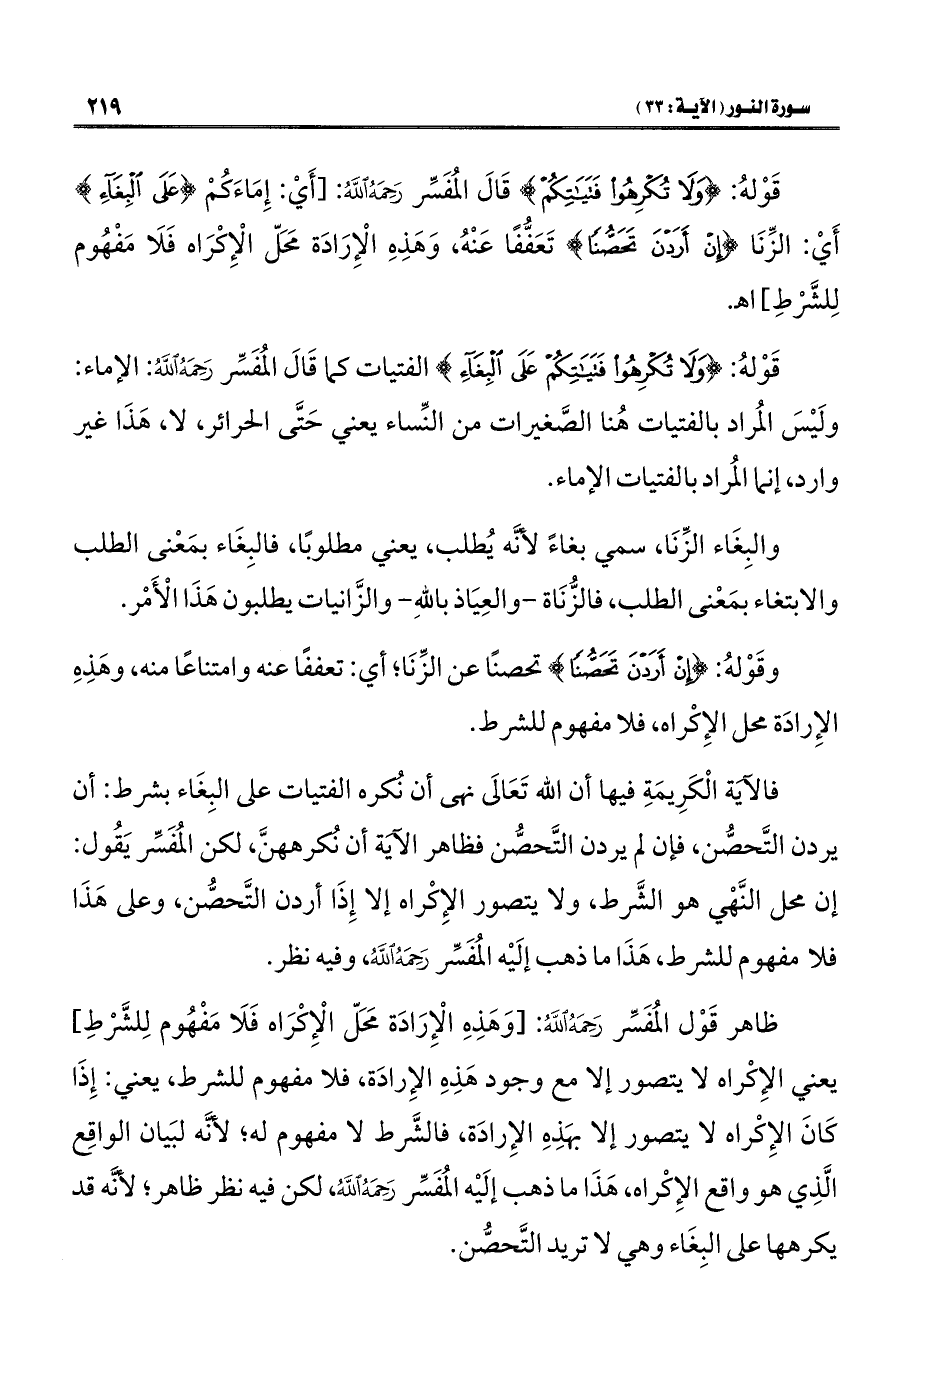 سورة النور (الآية: ٣٣) ٢١٩
قَوْلهُ: ﴿وَلَا تُكْرِهُوا۟ فَتَيَـٰتِكُمْ﴾ قَالَ المُفَسِّر رَحِمَهُ اللَّهُ: [أَيْ: إِمَاءَكُمْ ﴿عَلَى ٱلْبِغَآءِ﴾
أَيْ: الزِّنَا ﴿إِنْ أَرَدْنَ تَحَصُّنًا﴾ تَعَفُّفًا عَنْهُ، وَهَذِهِ الْإِرَادَة مَحَلّ الْإِكْرَاه فَلَا مَفْهُوم
لِلشَّرْطِ] اهـ.
قَوْلهُ: ﴿وَلَا تُكْرِهُوا۟ فَتَيَـٰتِكُمْ عَلَى ٱلْبِغَآءِ﴾ الفتيات كما قَالَ المُفَسِّر رَحِمَهُ اللَّهُ: الإماء:
ولَيْسَ المُراد بالفتيات هُنا الصَّغيرات من النِّساء يعني حَتَّى الحرائر، لا، هَذَا غير
وارد، إنما المُراد بالفتيات الإماء.
والبِغَاء الزِّنَا، سمي بغاءً لأنَّه يُطلب، يعني مطلوبًا، فالبِغَاء بمَعْنى الطلب
والابتغاء بمَعْنى الطلب، فالزُّنَاة -والعِيَاذ باللهِ- والزَّانيات يطلبون هَذَا الْأَمْر.
وقَوْلهُ: ﴿إِنْ أَرَدْنَ تَحَصُّنًا﴾ تحصنًا عن الزِّنَا؛ أي: تعففًا عنه وامتناعًا منه، وهَذِهِ
الإرَادَة محل الإكْراه، فلا مفهوم للشرط.
فالآيَة الْكَرِيمَةِ فيها أن الله تَعَالَى نهى أن نُكره الفتيات على البِغَاء بشرط: أن
يردن التَّحصُّن، فإن لم يردن التَّحصُّن فظاهر الآيَة أن نُكرههنَّ، لكن المُفَسِّر يَقُول:
إن محل النَّهْي هو الشَّرط، ولا يتصور الإكْراه إلا إذَا أردن التَّحصُّن، وعلى هَذَا
فلا مفهوم للشرط، هَذَا ما ذهب إلَيْه المُفَسِّر رَحِمَهُ اللَّهُ، وفيه نظر.
ظاهر قَوْل المُفَسِّر رَحِمَهُ اللَّهُ: [وَهَذِهِ الْإِرَادَة مَحَلّ الْإِكْرَاه فَلَا مَفْهُوم لِلشَّرْطِ]
يعني الإكْراه لا يتصور إلا مع وجود هَذِهِ الإرَادَة، فلا مفهوم للشرط، يعني: إذَا
كَانَ الإكْراه لا يتصور إلا بهَذِهِ الإرَادَة، فالشَّرط لا مفهوم له؛ لأنَّه لبَيان الواقِع
الَّذِي هو واقع الإكْراه، هَذَا ما ذهب إلَيْه المُفَسِّر رَحِمَهُ اللَّهُ، لكن فيه نظر ظاهر؛ لأنَّه قد
يكرهها على البِغَاء وهي لا تريد التَّحصُّن.